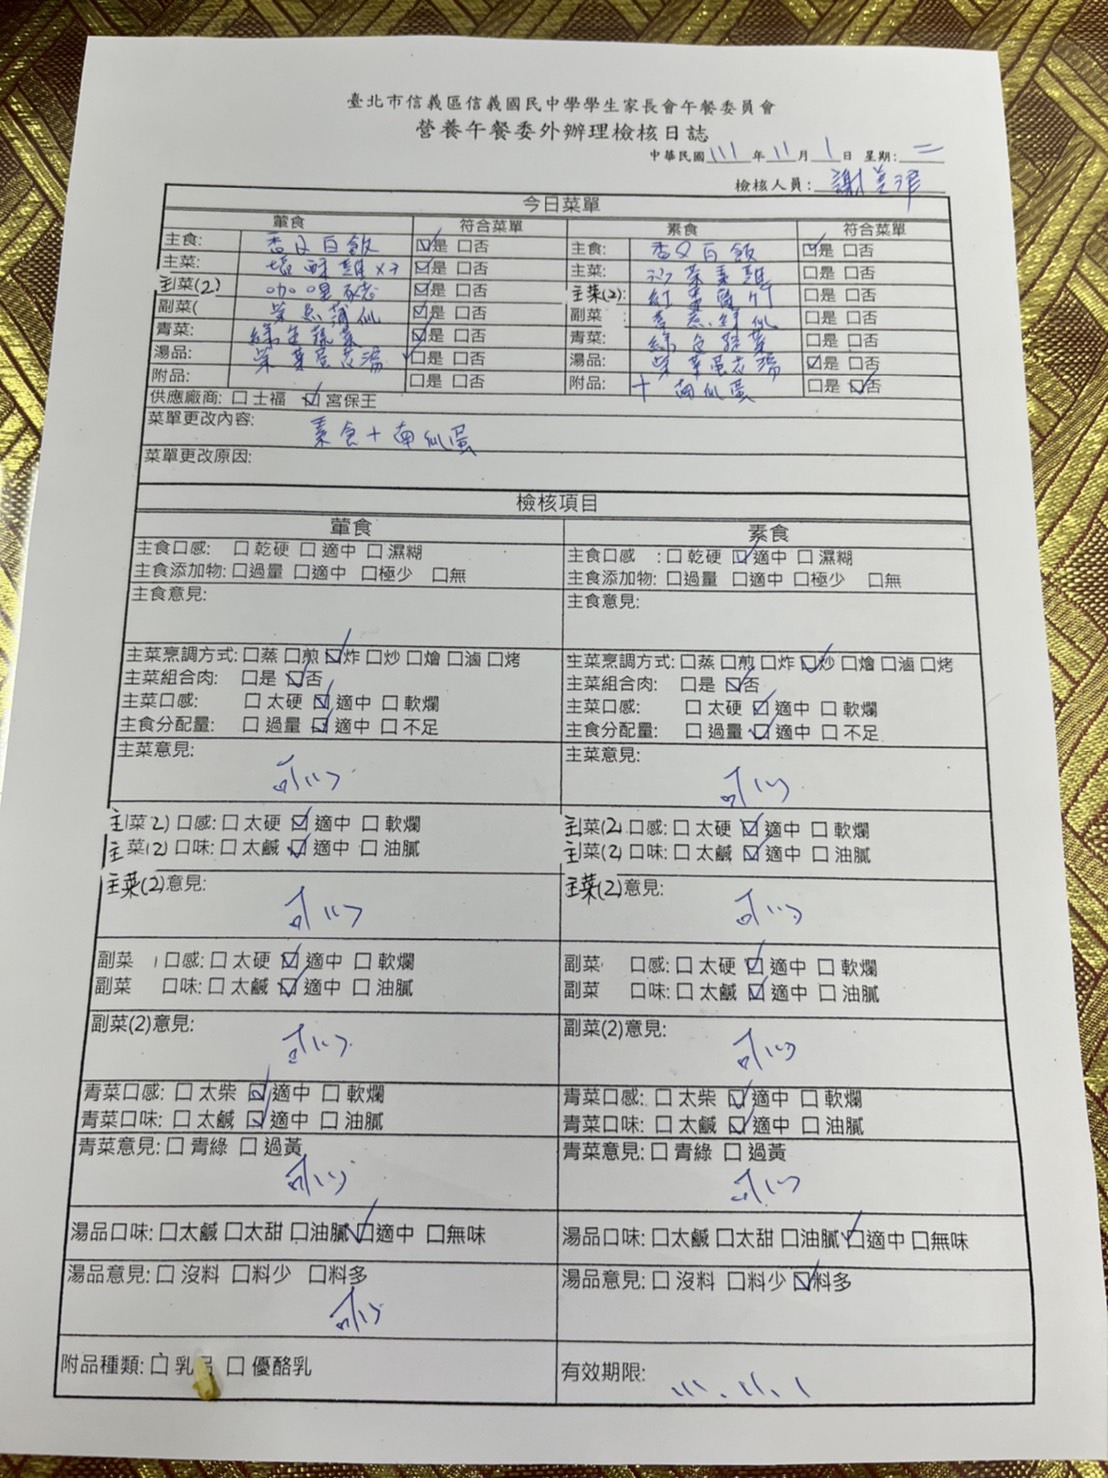 臺北市信義區信義國民中學學生家長會午餐委員會
營養午餐委外辦理檢核日誌
中華民國 111 年 11 月 1 日 星期: 二
檢核人員:
今日菜單
葷食 符合菜單 素食 符合菜單
主食: 香Q白飯 ☑是 □否 主食: 香Q白飯 ☑是 □否
主菜: 鹽酥雞x3 ☑是 □否 主菜: 沙茶素雞 □是 □否
主菜(2) 咖哩豬 ☑是 □否 主菜(2): □是 □否
副菜( ☑是 □否 副菜 : □是 □否
青菜: 綠色蔬菜 ☑是 □否 青菜: 綠色蔬菜 □是 □否
湯品: 紫菜蛋花湯 ☑是 □否 湯品: 紫菜蛋花湯 ☑是 □否
附品: □是 □否 附品: + 滷蛋 □是 ☑否
供應廠商: □ 士福 ☑ 宮保王
菜單更改內容: 素食+
菜單更改原因:
檢核項目
葷食 素食
主食口感: □ 乾硬 □ 適中 □ 濕糊 主食口感 : □ 乾硬 ☑適中 □ 濕糊
主食添加物: □過量 □適中 □極少 □無 主食添加物: □過量 □適中 □極少 □無
主食意見: 主食意見:
主菜烹調方式: □蒸 □煎 ☑炸 □炒 □燴 □滷 □烤 主菜烹調方式: □蒸 □煎 □炸 ☑炒 □燴 □滷 □烤
主菜組合肉: □是 ☑否 主菜組合肉: □是 ☑否
主菜口感: □ 太硬 ☑ 適中 □ 軟爛 主菜口感: □ 太硬 ☑ 適中 □ 軟爛
主食分配量: □ 過量 ☑ 適中 □ 不足 主食分配量: □ 過量 ☑ 適中 □ 不足
主菜意見: 可以 主菜意見: 可以
主菜2) 口感: □ 太硬 ☑ 適中 □ 軟爛 主菜(2 口感: □ 太硬 ☑適中 □ 軟爛
主菜(2) 口味: □ 太鹹 ☑ 適中 □ 油膩 主菜(2) 口味: □ 太鹹 ☑適中 □ 油膩
主菜(2)意見: 可以 主菜(2)意見: 可以
副菜 口感: □ 太硬 ☑適中 □ 軟爛 副菜 口感: □ 太硬 ☑適中 □ 軟爛
副菜 口味: □ 太鹹 ☑適中 □ 油膩 副菜 口味: □ 太鹹 ☑適中 □ 油膩
副菜(2)意見: 可以 副菜(2)意見: 可以
青菜口感: □ 太柴 ☑適中 □ 軟爛 青菜口感: □ 太柴 ☑適中 □ 軟爛
青菜口味: □ 太鹹 ☑適中 □ 油膩 青菜口味: □ 太鹹 ☑適中 □ 油膩
青菜意見: □ 青綠 □ 過黃 可以 青菜意見: □ 青綠 □ 過黃 可以
湯品口味: □太鹹 □太甜 □油膩 ☑適中 □無味 湯品口味: □太鹹 □太甜 □油膩 ☑適中 □無味
湯品意見: □ 沒料 □料少 □料多 可以 湯品意見: □ 沒料 □料少 ☑料多
附品種類: □ 乳品 □ 優酪乳 有效期限: 111.11.1